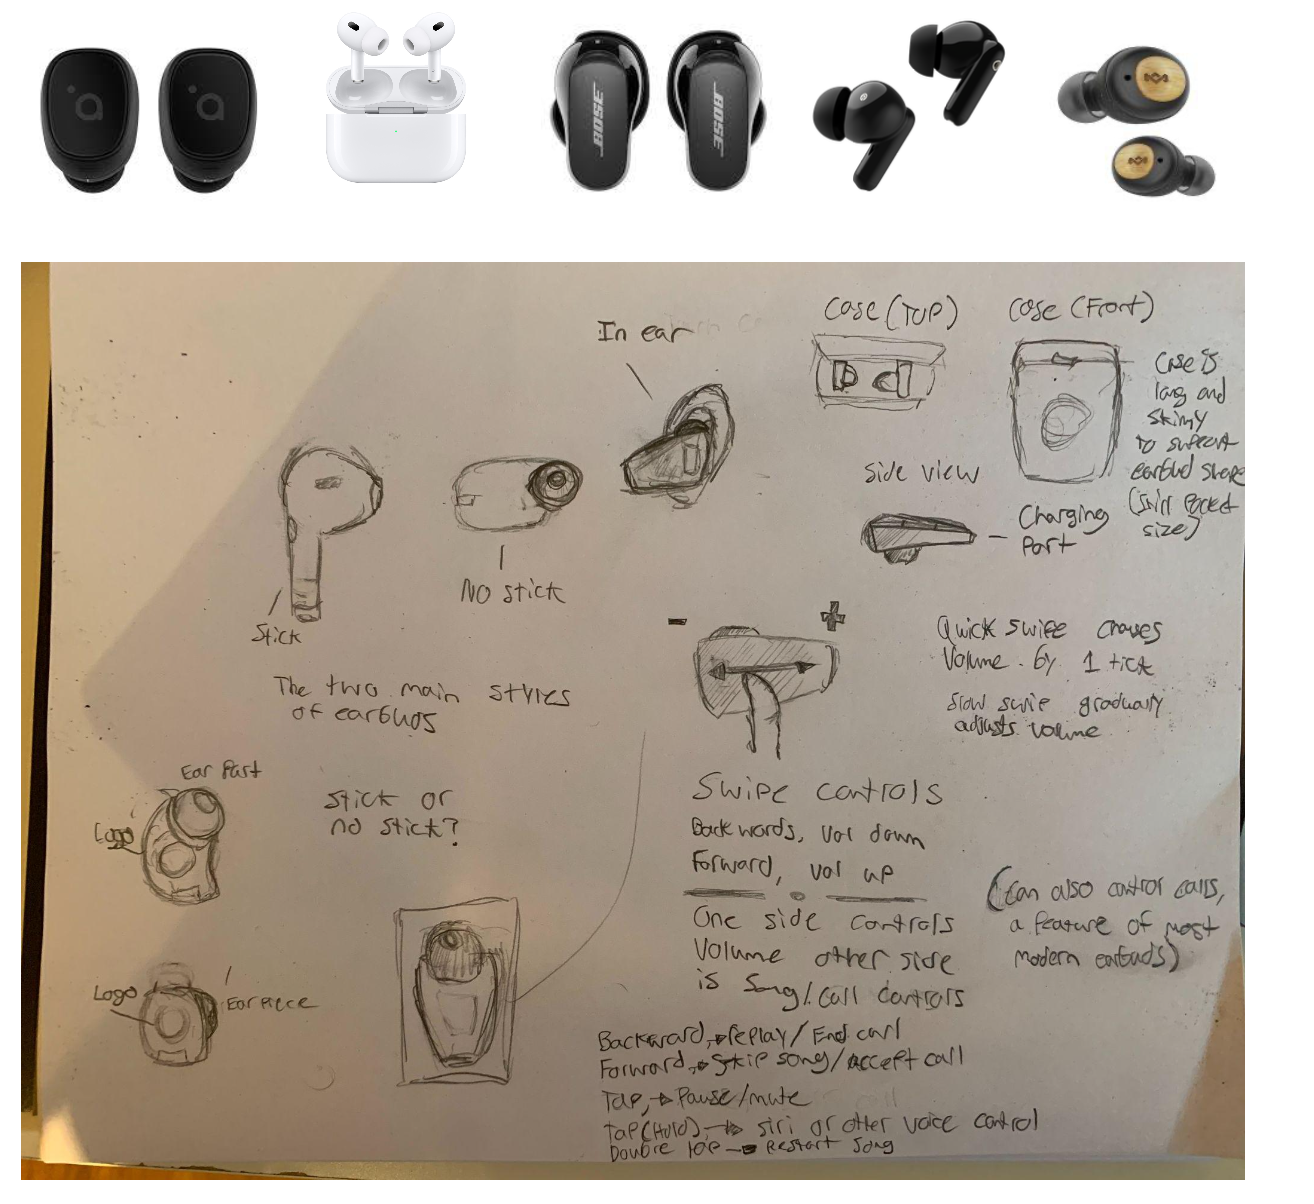 BOSE
BOSE
In ear
Case (TOP)
Case (Front)
Case is
long and
skinny
to support
earbud shape
(still Pocket
size)
Side view
Charging
Port
Stick
NO stick
The two main styles
of earbuds
Stick or
no stick?
- +
Quick swipe changes
Volume by 1 tick
Slow swipe gradually
adjusts volume
Ear Part
Logo
Logo
Ear piece
Swipe controls
Backwords, vol down
Forward, vol up
One side controls
Volume other side
is Song/call controls
(Can also control calls,
a feature of most
modern earbuds)
Backward, → replay/End call
Forward, → Skip song/accept call
Tap, → Pause/mute
Tap(Hold), → siri or other voice control
Double tap → Restart song